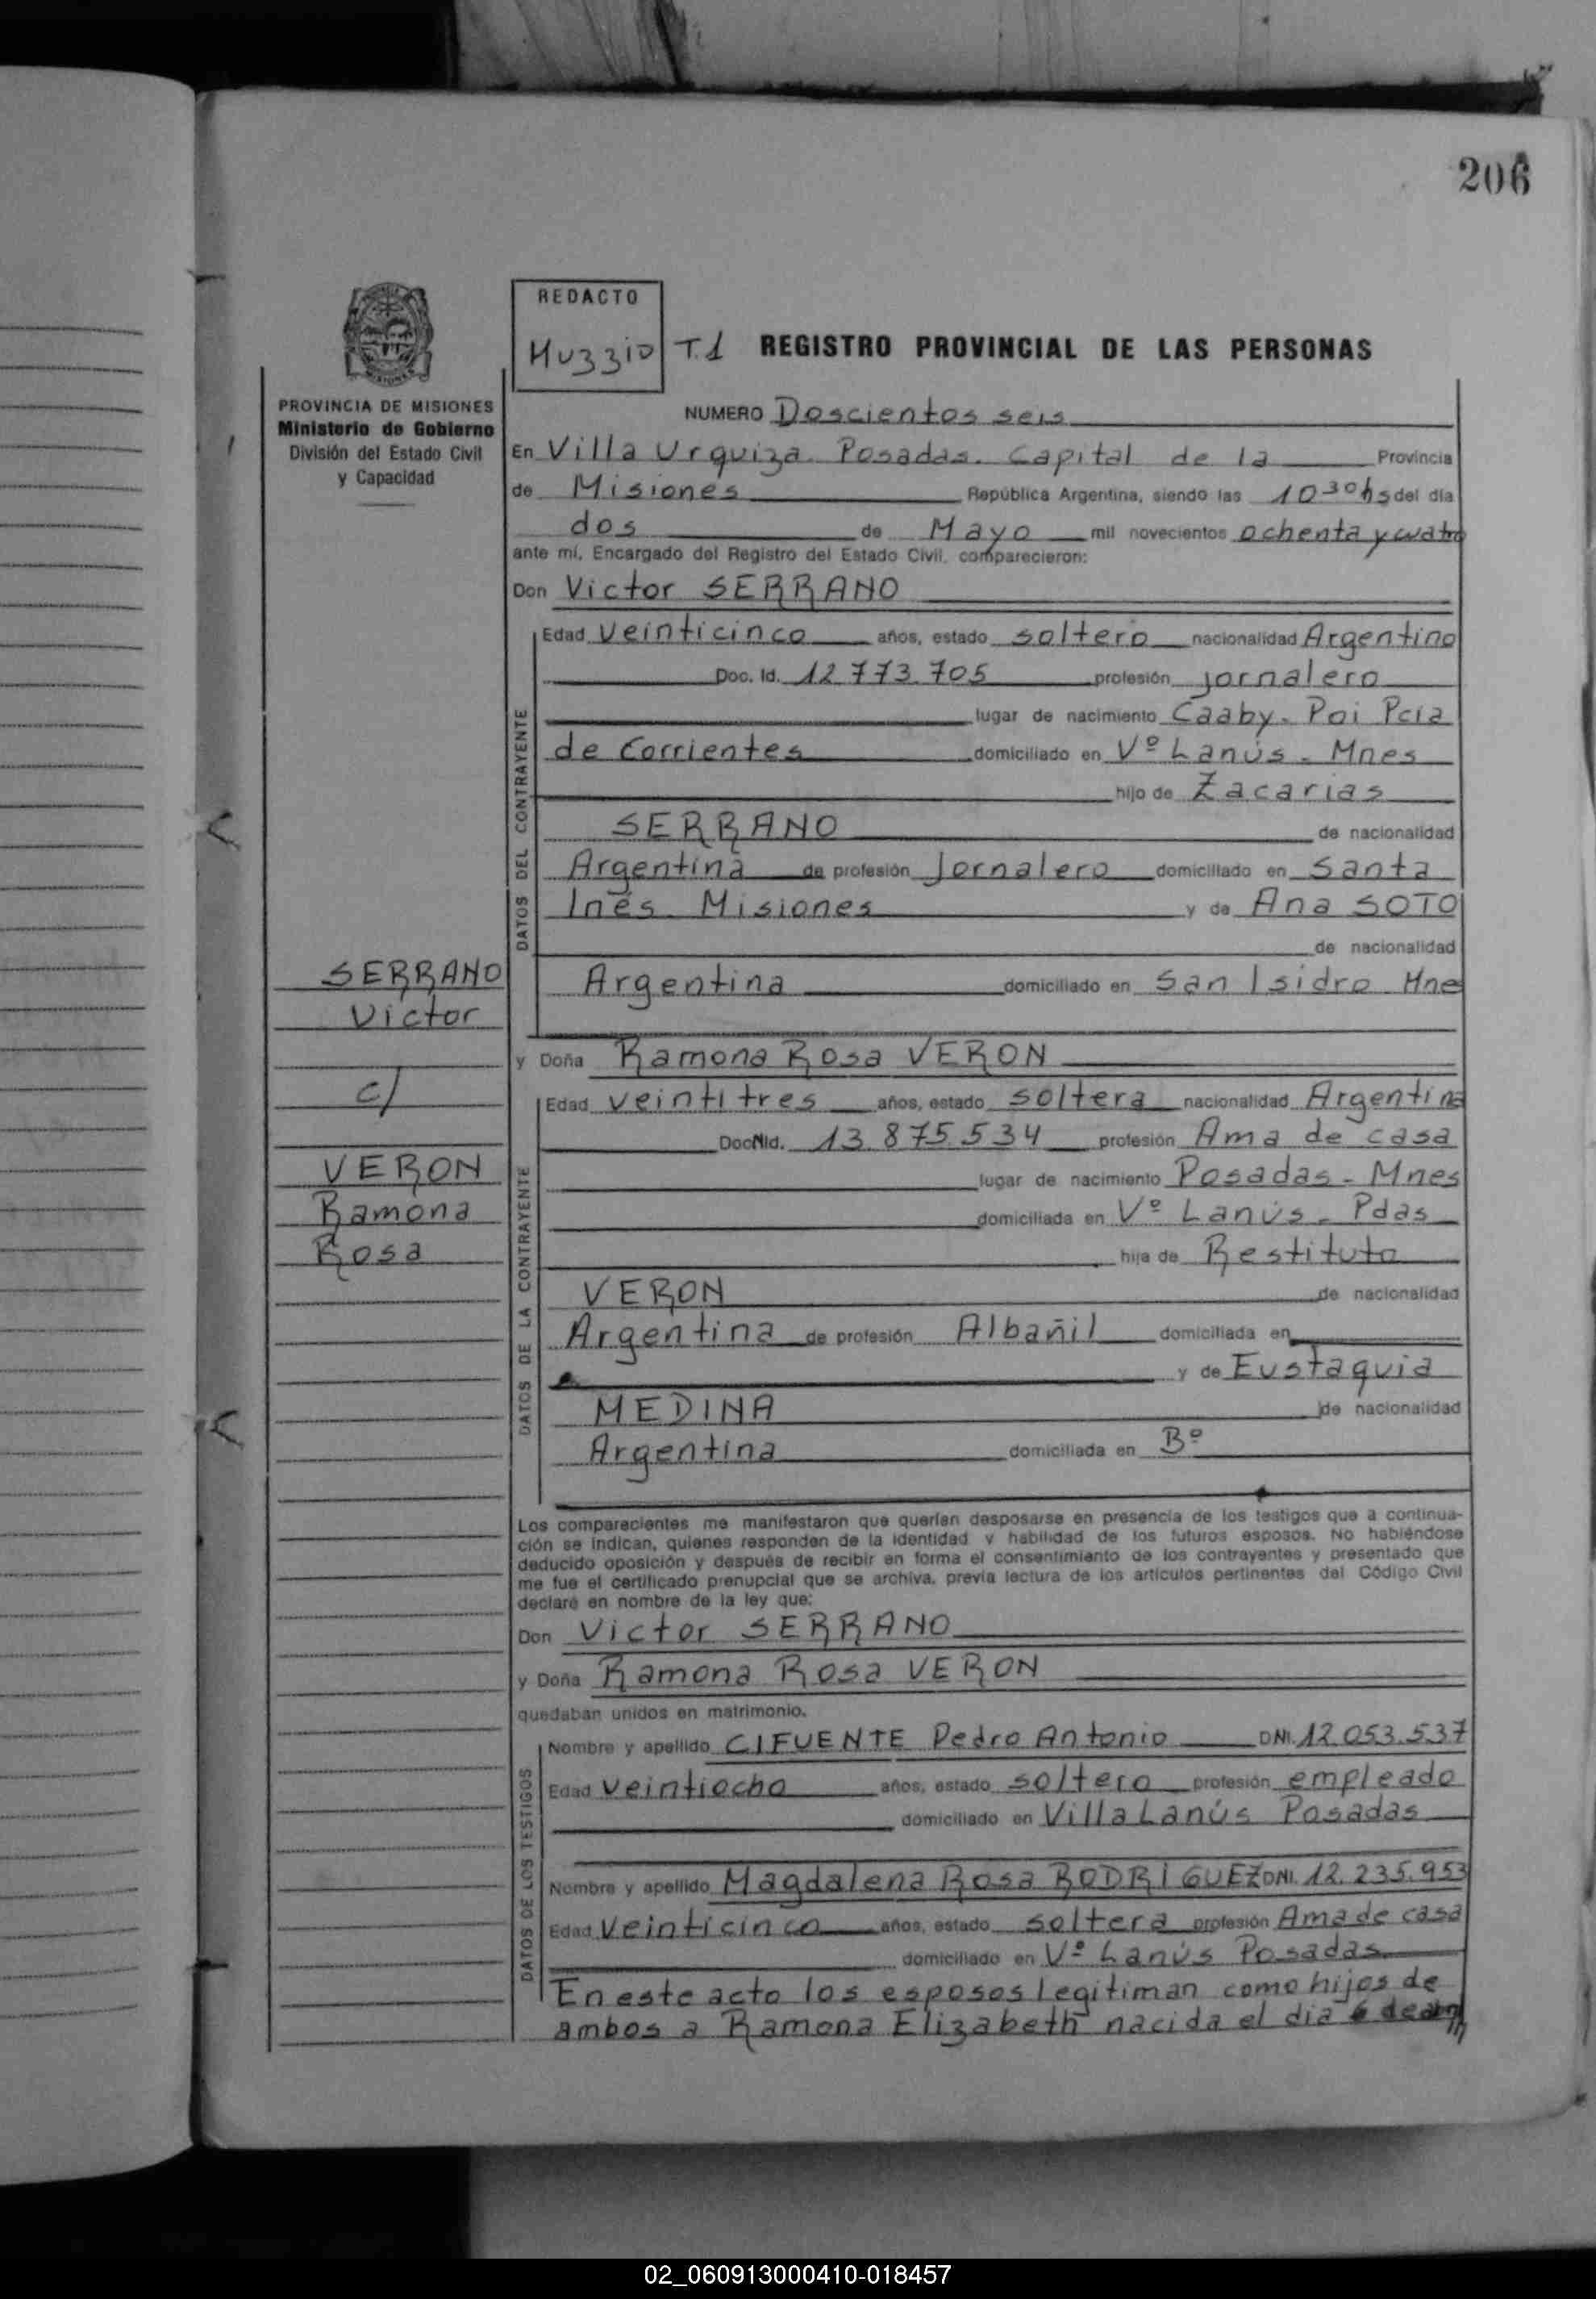 206
REDACTO
Muzzio T.1 REGISTRO PROVINCIAL DE LAS PERSONAS
PROVINCIA DE MISIONES
Ministerio de Gobierno
División del Estado Civil
y Capacidad
NUMERO Doscientos seis
En Villa Urquiza. Posadas. Capital de la Provincia
de Misiones República Argentina, siendo las 10 30 hs del día
dos de Mayo mil novecientos ochenta y cuatro
ante mí, Encargado del Registro del Estado Civil, comparecieron:
Don Victor SERRANO
DATOS DEL CONTRAYENTE
Edad veinticinco años, estado soltero nacionalidad Argentino
Doc. Id. 12 773.705 profesión jornalero
lugar de nacimiento Caaby-Poi Pcia
de Corrientes domiciliado en Vº Lanús - Mnes
hijo de Zacarias
SERRANO de nacionalidad
Argentina de profesión Jornalero domiciliado en Santa
Inés Misiones y de Ana SOTO
de nacionalidad
Argentina domiciliado en San Isidro Mne
SERRANO
Victor
c/
VERON
Ramona
Rosa
y Doña Ramona Rosa VERON
DATOS DE LA CONTRAYENTE
Edad veintitres años, estado soltera nacionalidad Argentina
Doc. Id. 13.875.534 profesión Ama de casa
lugar de nacimiento Posadas - Mnes
domiciliada en Vº Lanús - Pdas
hija de Restituto
VERON de nacionalidad
Argentina de profesión Albañil domiciliada en
y de Eustaquia
MEDINA de nacionalidad
Argentina domiciliada en Bº
Los comparecientes me manifestaron que querían desposarse en presencia de los testigos que a continua-
ción se indican, quienes responden de la identidad y habilidad de los futuros esposos. No habiéndose
deducido oposición y después de recibir en forma el consentimiento de los contrayentes y presentado que
me fue el certificado prenupcial que se archiva, previa lectura de los artículos pertinentes del Código Civil
declaré en nombre de la ley que:
Don Victor SERRANO
y Doña Ramona Rosa VERON
quedaban unidos en matrimonio.
DATOS DE LOS TESTIGOS
Nombre y apellido CIFUENTE Pedro Antonio DNI. 12.053.537
Edad veintiocho años, estado soltero profesión empleado
domiciliado en Villa Lanús Posadas
Nombre y apellido Magdalena Rosa RODRIGUEZ DNI. 12.235.953
Edad Veinticinco años, estado soltera profesión Ama de casa
domiciliado en Vº Lanús Posadas
En este acto los esposos legitiman como hijos de
ambos a Ramona Elizabeth nacida el dia 6 de
02_060913000410-018457